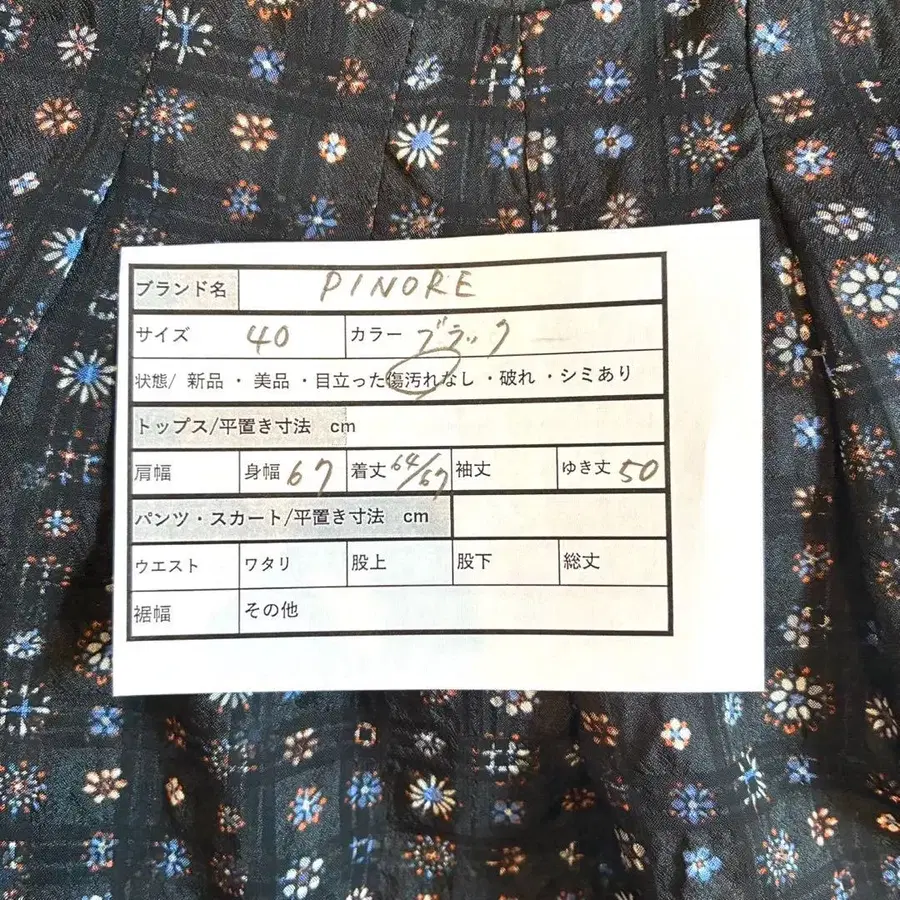 ブランド名 PINORE
サイズ 40 カラー ブラック
状態/ 新品 ・ 美品 ・目立った傷汚れなし ・破れ ・シミあり
トップス/平置き寸法 cm
肩幅 身幅 67 着丈 64/67 袖丈 ゆき丈 50
パンツ・スカート/平置き寸法 cm
ウエスト ワタリ 股上 股下 総丈
裾幅 その他